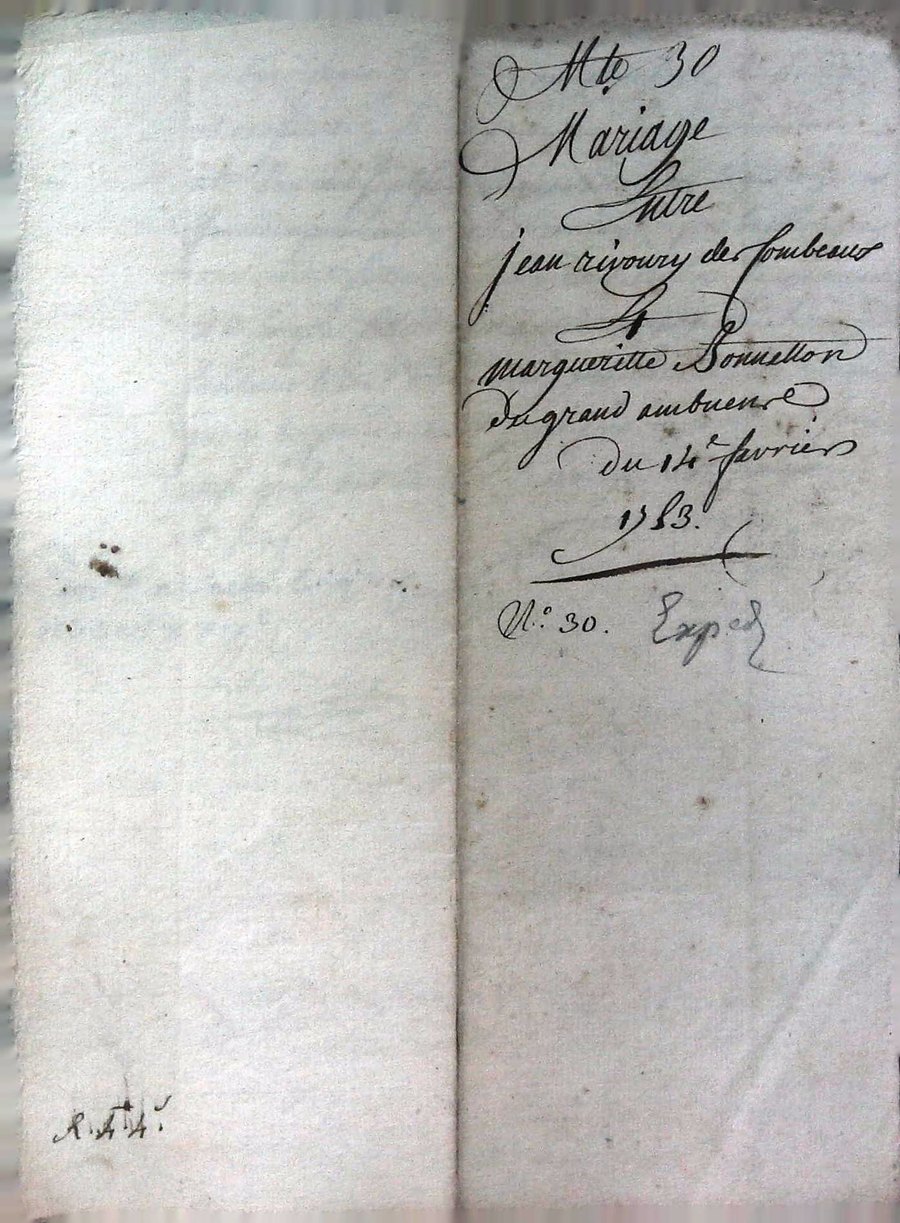 Mte 30
Mariage
Entre
jean rivoury des Combeaux
Et
margueritte Bonnellon
du grand ambuenne
du 14e fevrier
1783.
N.o 30. Exped
R. 44s